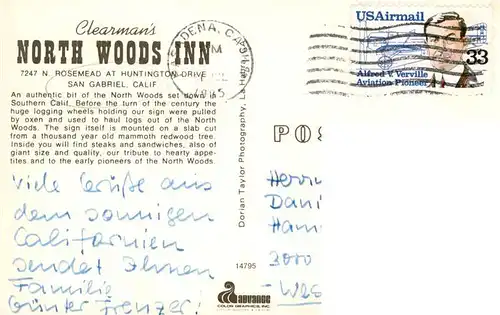 Clearman's
NORTH WOODS INN
7247 N. ROSEMEAD AT HUNTINGTON DRIVE
SAN GABRIEL, CALIF
An authentic bit of the North Woods set down in
Southern Calif. Before the turn of the century the
huge logging wheels holding our sign were pulled
by oxen and used to haul logs out of the North
Woods. The sign itself is mounted on a slab cut
from a thousand year old mammoth redwood tree.
Inside you will find steaks and sandwiches, also of
giant size and quality, our tribute to hearty appe-
tites and to the early pioneers of the North Woods.
Viele Grüße aus
dem sonnigen
Californien
sendet Ihnen
Familie
Günter Frenzer!
DENA, CA
PM
Dorian Taylor Photography,
14795
advance
COLOR GRAPHICS, INC.
USAirmail
Alfred V. Verville
Aviation Pioneer
33
POS
Herrn
Dani
Ham
3000